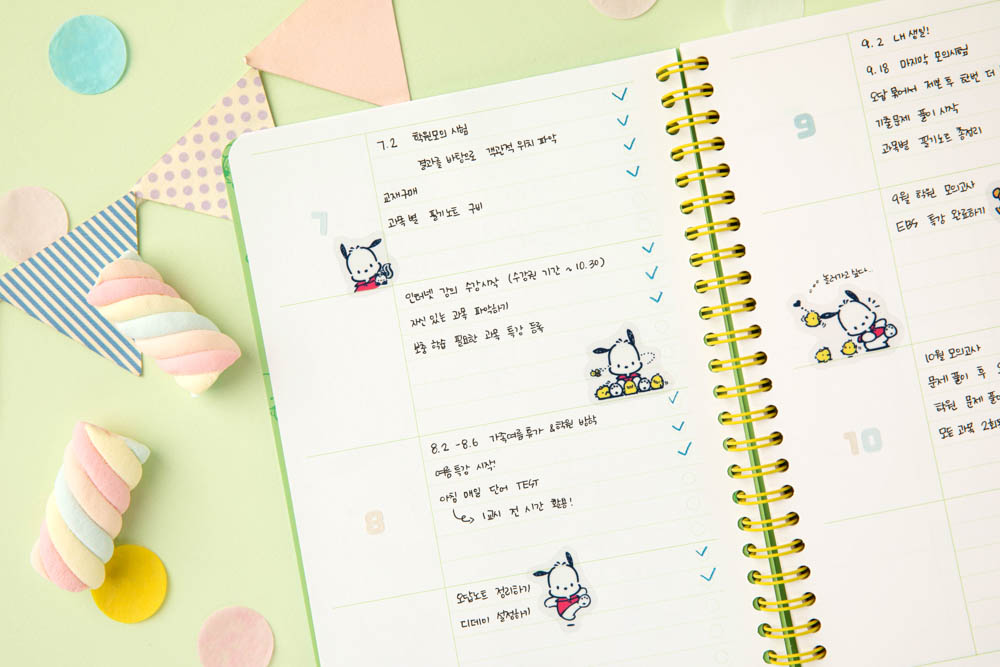 7
7.2 학원모의 시험
결과를 바탕으로 객관적 위치 파악
교재구매
과목별 필기노트 구비
인터넷 강의 수강시작 (수강권 기간 ~10.30)
자신 있는 과목 파악하기
보충 학습 필요한 과목 특강 등록
8
8.2 -8.6 가족여름휴가 &학원 방학
여름특강 시작!
아침 매일 단어 TEST
1교시 전 시간 활용!
오답노트 정리하기
디데이 설정하기
9
9.2 내 생일!
9.18 마지막 모의시험
오답 묶어서 제본 후 한번 더
기출문제 풀이 시작
과목별 필기노트 총정리
9월 학원 모의고사
EBS 특강 완료하기
놀러가고 싶다...
10
10월 모의고사
문제 풀이 후
학원 문제 풀
모든 과목 2회